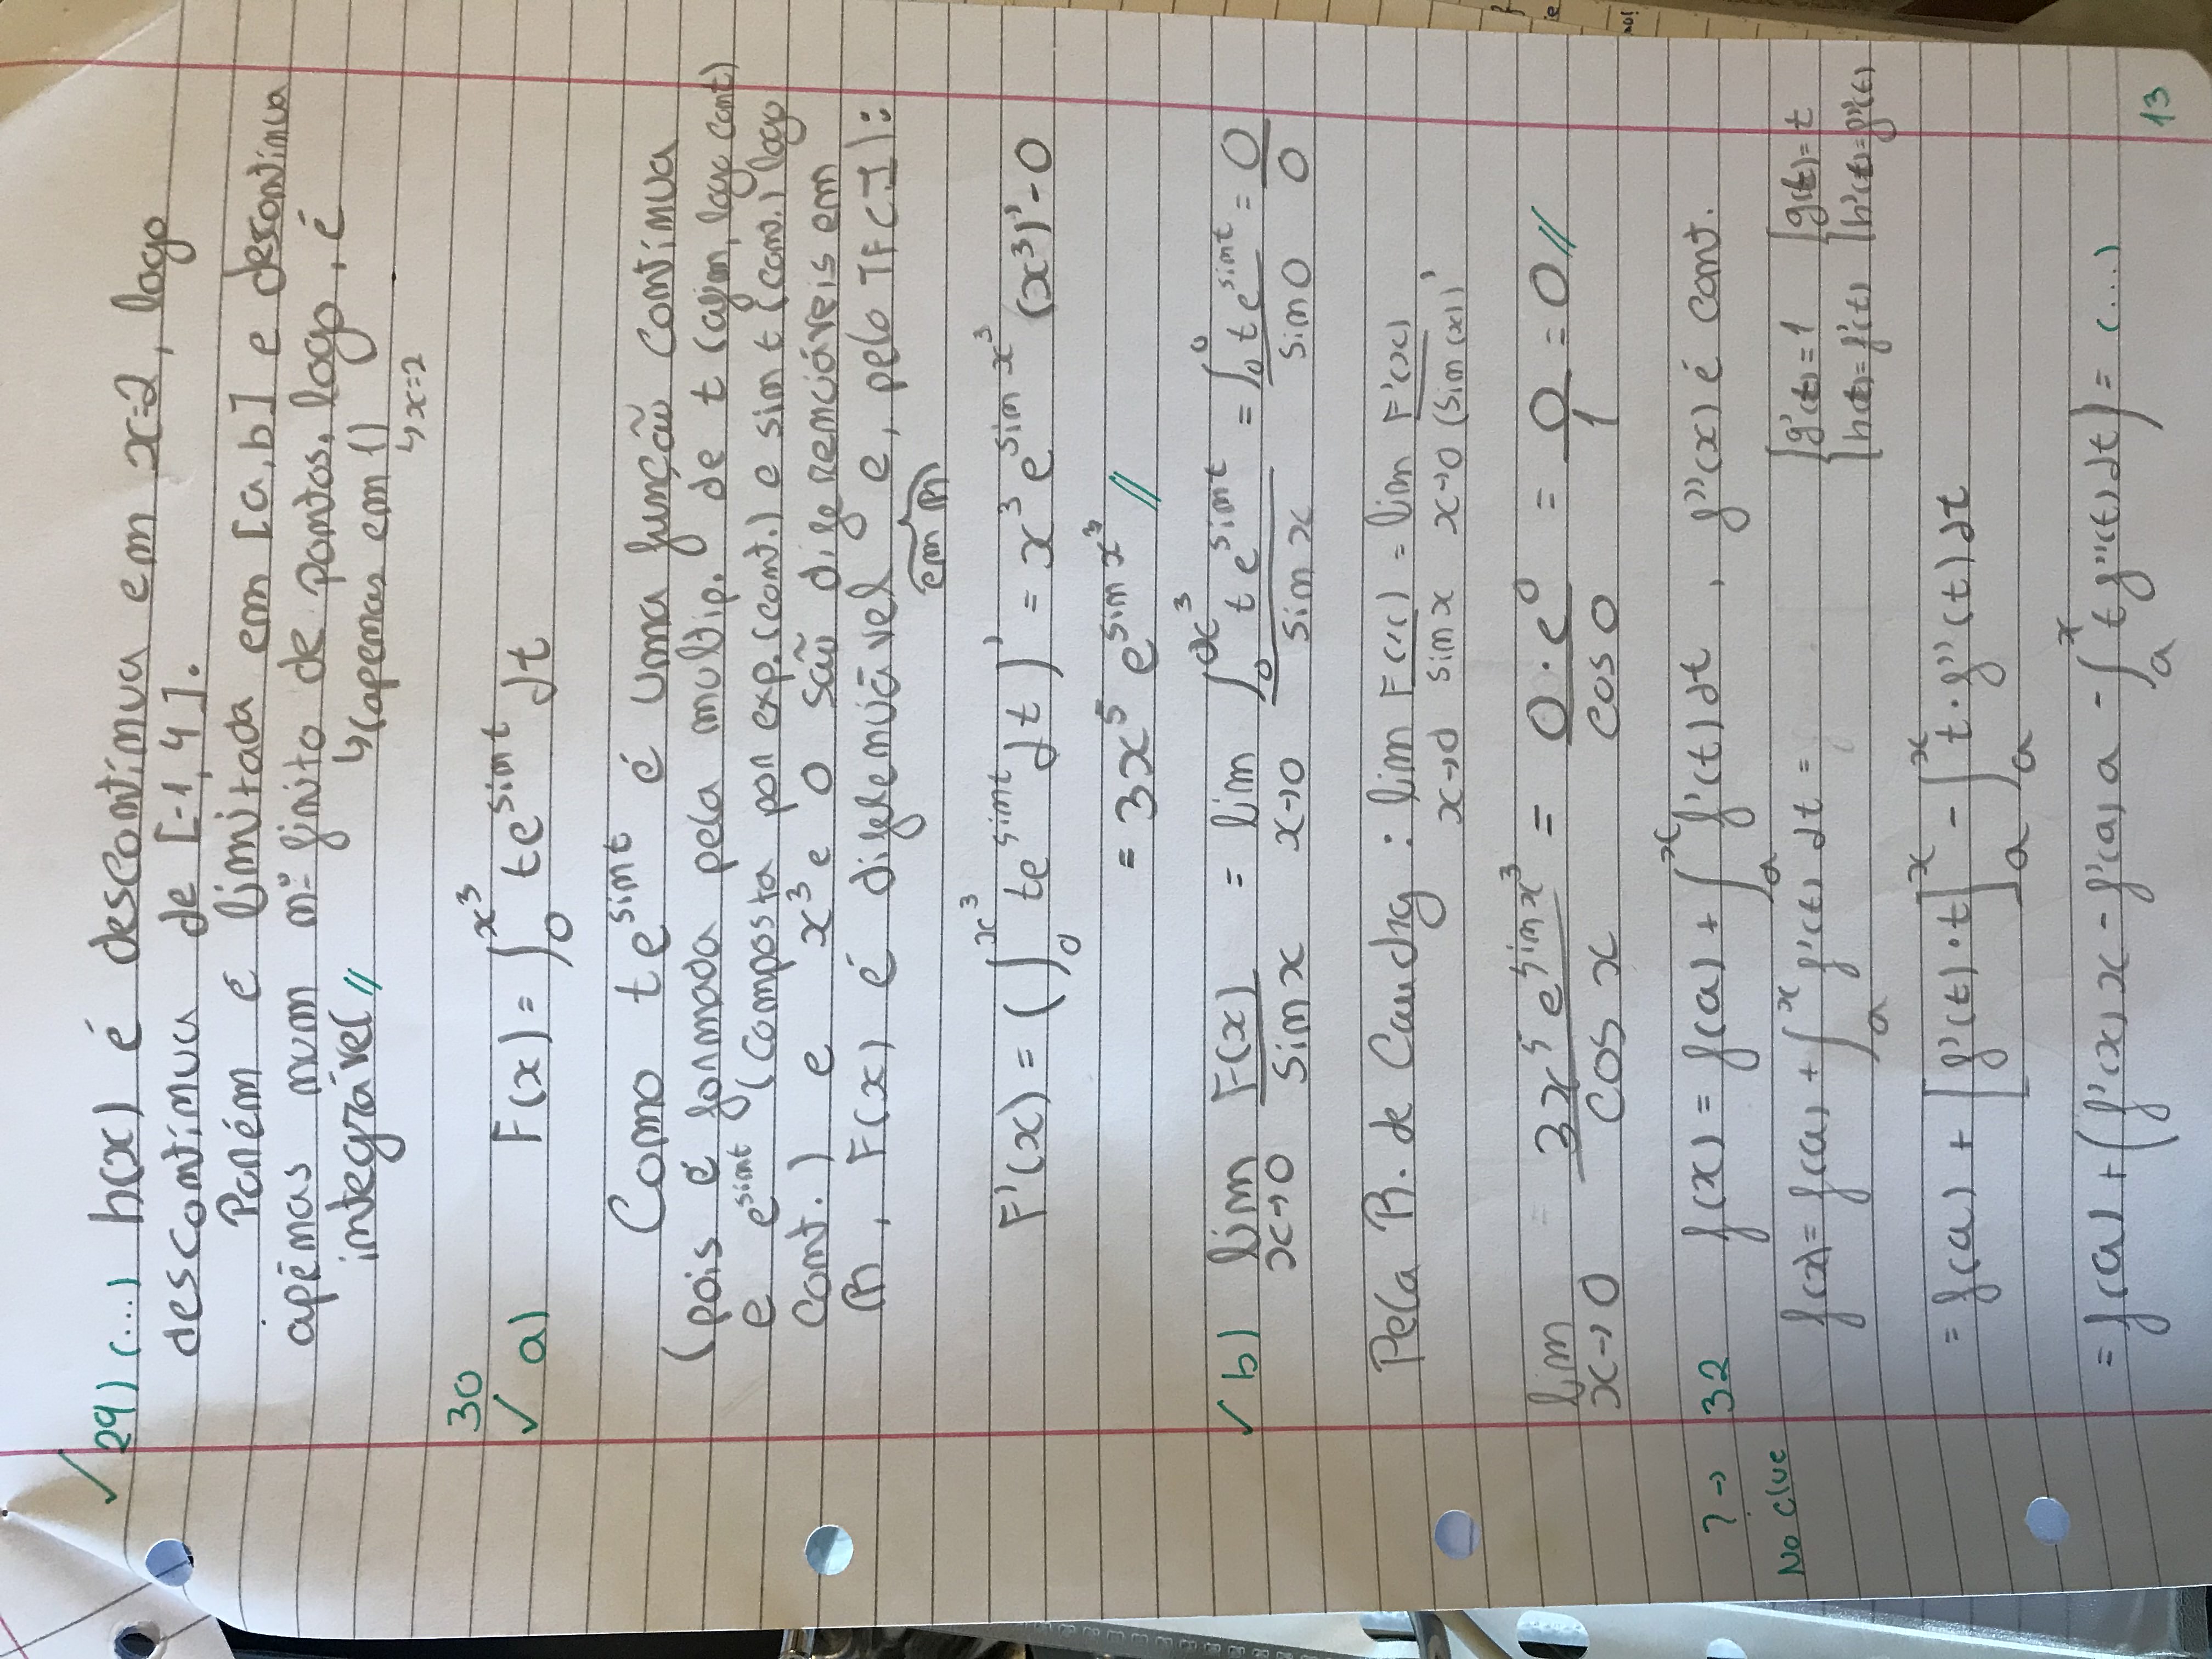 ✓ 29) (...) h(x) é descontínua em x=2, logo
descontínua de [-1, 4].
Porém é limitada em [a,b] e descontinua
apenas num nº finito de pontos. logo, é
integrável // ↳(apenas em 1)
↳x=2
30
✓ a) F(x) = ∫₀^{x³} te^{sin t} dt
Como te^{sin t} é uma função contínua
(pois é formada pela multip. de t (afim, logo cont)
e e^{sin t} (composta por exp.(cont.) e sin t (cont.) logo
cont.) e x³ e 0 são diferenciáveis em
ℝ, F(x) é diferenciável e, pelo TFCI):
em ℝ
F'(x) = (∫₀^{x³} te^{sin t} dt)' = x³ e^{sin x³} (x³)' - 0
= 3x⁵ e^{sin x³} //
✓ b) lim_{x→0} F(x)/sin x = lim_{x→0} ∫₀^{x³} t e^{sin t}/sin x = ∫₀^0 t e^{sin t}/sin 0 = 0/0
Pela R. de Cauchy : lim_{x→0} F(x)/sin x = lim_{x→0} F'(x)/(sin(x))'
lim_{x→0} = 3x⁵ e^{sin x³}/cos x = 0·e⁰/cos 0 = 0/1 = 0 //
? → 32 f(x) = f(a) + ∫_a^x f'(t) dt , f''(x) é cont.
No clue
f(x) = f(a) + ∫_a^x f'(t) dt = { g'(t) = 1 { g(t) = t
{ h(t) = f'(t) { h'(t) = f''(t)
= f(a) + [f'(t)·t]_a^x - ∫_a^x t·f''(t) dt
= f(a) + (f'(x) x - f'(a) a - ∫_a^x t f''(t) dt) = (...)
13